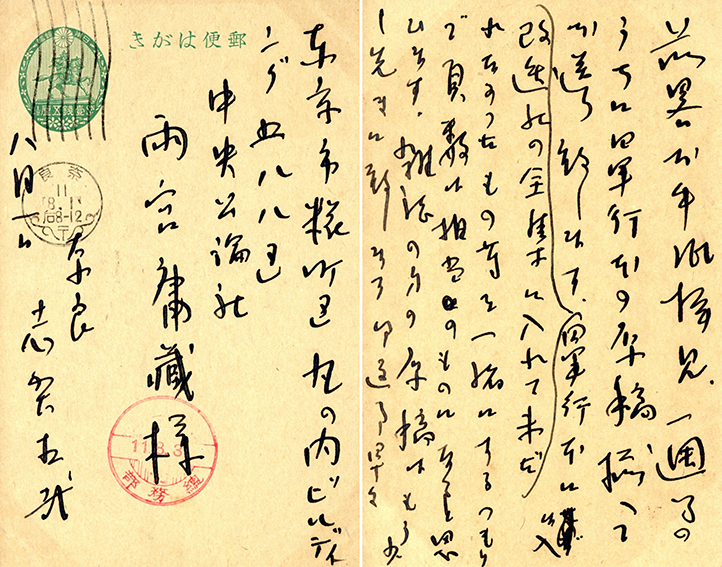 郵便はがき
東京市麹町区丸の内ビルディ
ング五八八区
中央公論社
雨宮庸蔵様
八月一日
奈良
志賀直哉
奈良
11
8.1
后8-12
11.8.3
總務部
お手紙拝見、一週間の
うちに単行本の原稿揃へて
お送り致します、(単行本に
改造社の全集本に入れて未だ
れなかったもの等を一緒にするつもり
で頁数は相当のものになると思
ひます、雑誌の方の原稿はもう少
し先きに